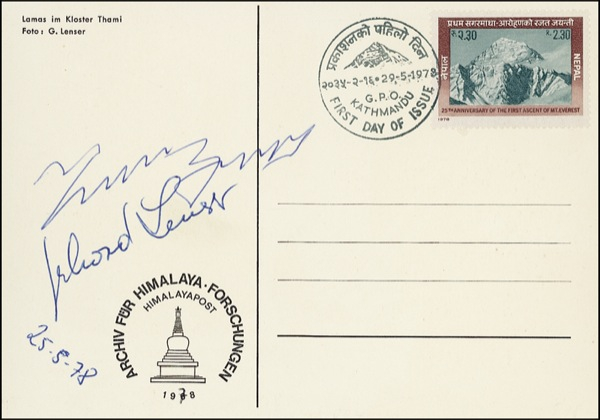 Lamas im Kloster Thami
Foto: G. Lenser
प्रकाशनको पहिलो दिन
२०३५-२-१६•29-5-1978
G.P.O.
KATHMANDU
FIRST DAY OF ISSUE
प्रथम सगरमाथा-आरोहणको रजत जयन्ती
रु. २.३० R. 2.30
नेपाल
NEPAL
25TH ANNIVERSARY OF THE FIRST ASCENT OF MT. EVEREST
1978
Lenser
25-5-78
ARCHIV FÜR HIMALAYA•FORSCHUNGEN
HIMALAYAPOST